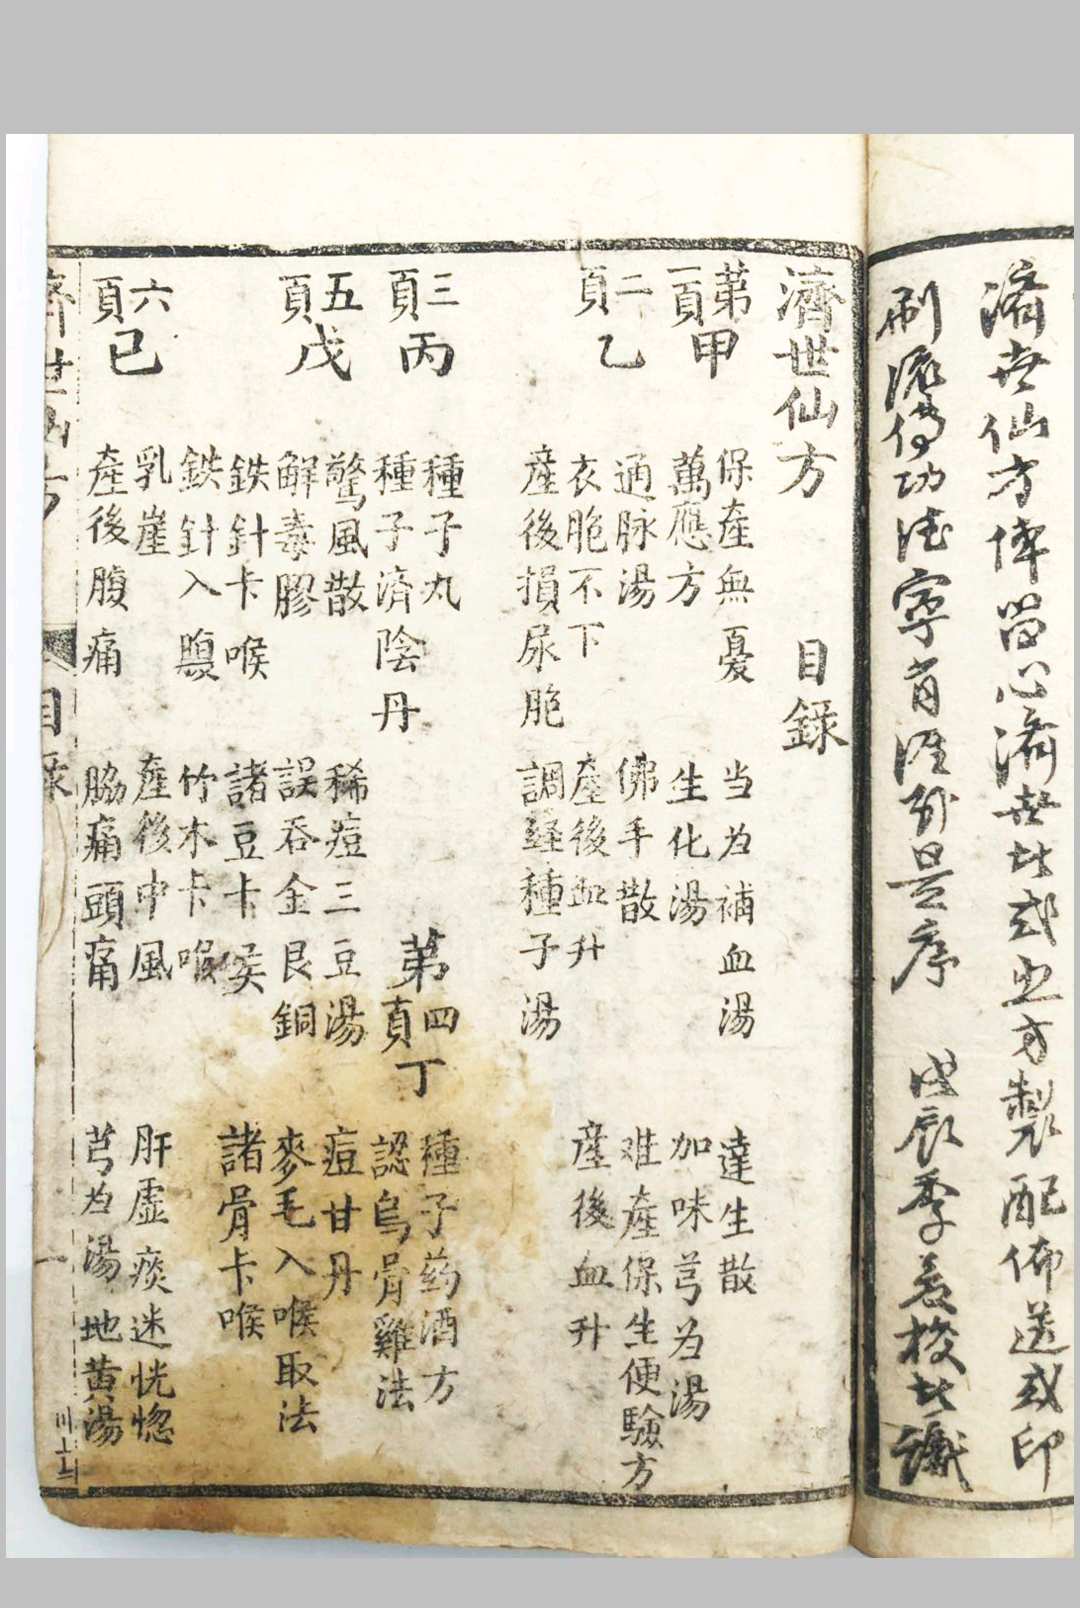 濟世仙方俾當心濟世此或出方製配佈送或印
刷流傳功德寧有涯哉是序 戊辰季春校此識
濟世仙方 目錄
第一頁甲 保產無憂 当为補血湯 達生散
萬應方 生化湯 加味芎为湯
二頁乙 通脉湯 佛手散 难產保生便驗方
衣胞不下 產後血升 產後血升
產後損尿胞 調経種子湯
三頁丙 種子丸 第四頁丁 種子药酒方
種子濟陰丹 認烏骨雞法
五頁戊 驚風散 稀痘三豆湯 痘甘丹
解毒膠 誤吞金艮銅 麥毛入喉取法
鉄針卡喉 諸豆卡侯 諸骨卡喉
鉄針入腹 竹木卡喉
六頁已 乳崖 產後中風 肝虛痰迷恍惚
產後腹痛 脇痛頭痛 芎为湯 地黄湯
濟世仙方 目錄 一